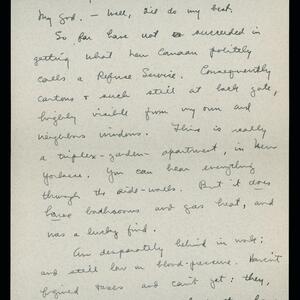 My God. — Well, I'll do my best.
So far have not succeeded in
getting what New Canaan politely
calls a Refuse Service. Consequently
cartons & such still at back gate,
highly visible from my own and
neighbors windows. This is really
a duplex-garden-apartment, in New
You can hear everything
through the side-walls. But it does
have bathrooms and gas heat, and
was a lucky find.
Am desperately behind in work:
and still low in blood-pressure. Haven't
figured taxes and can't yet: they,